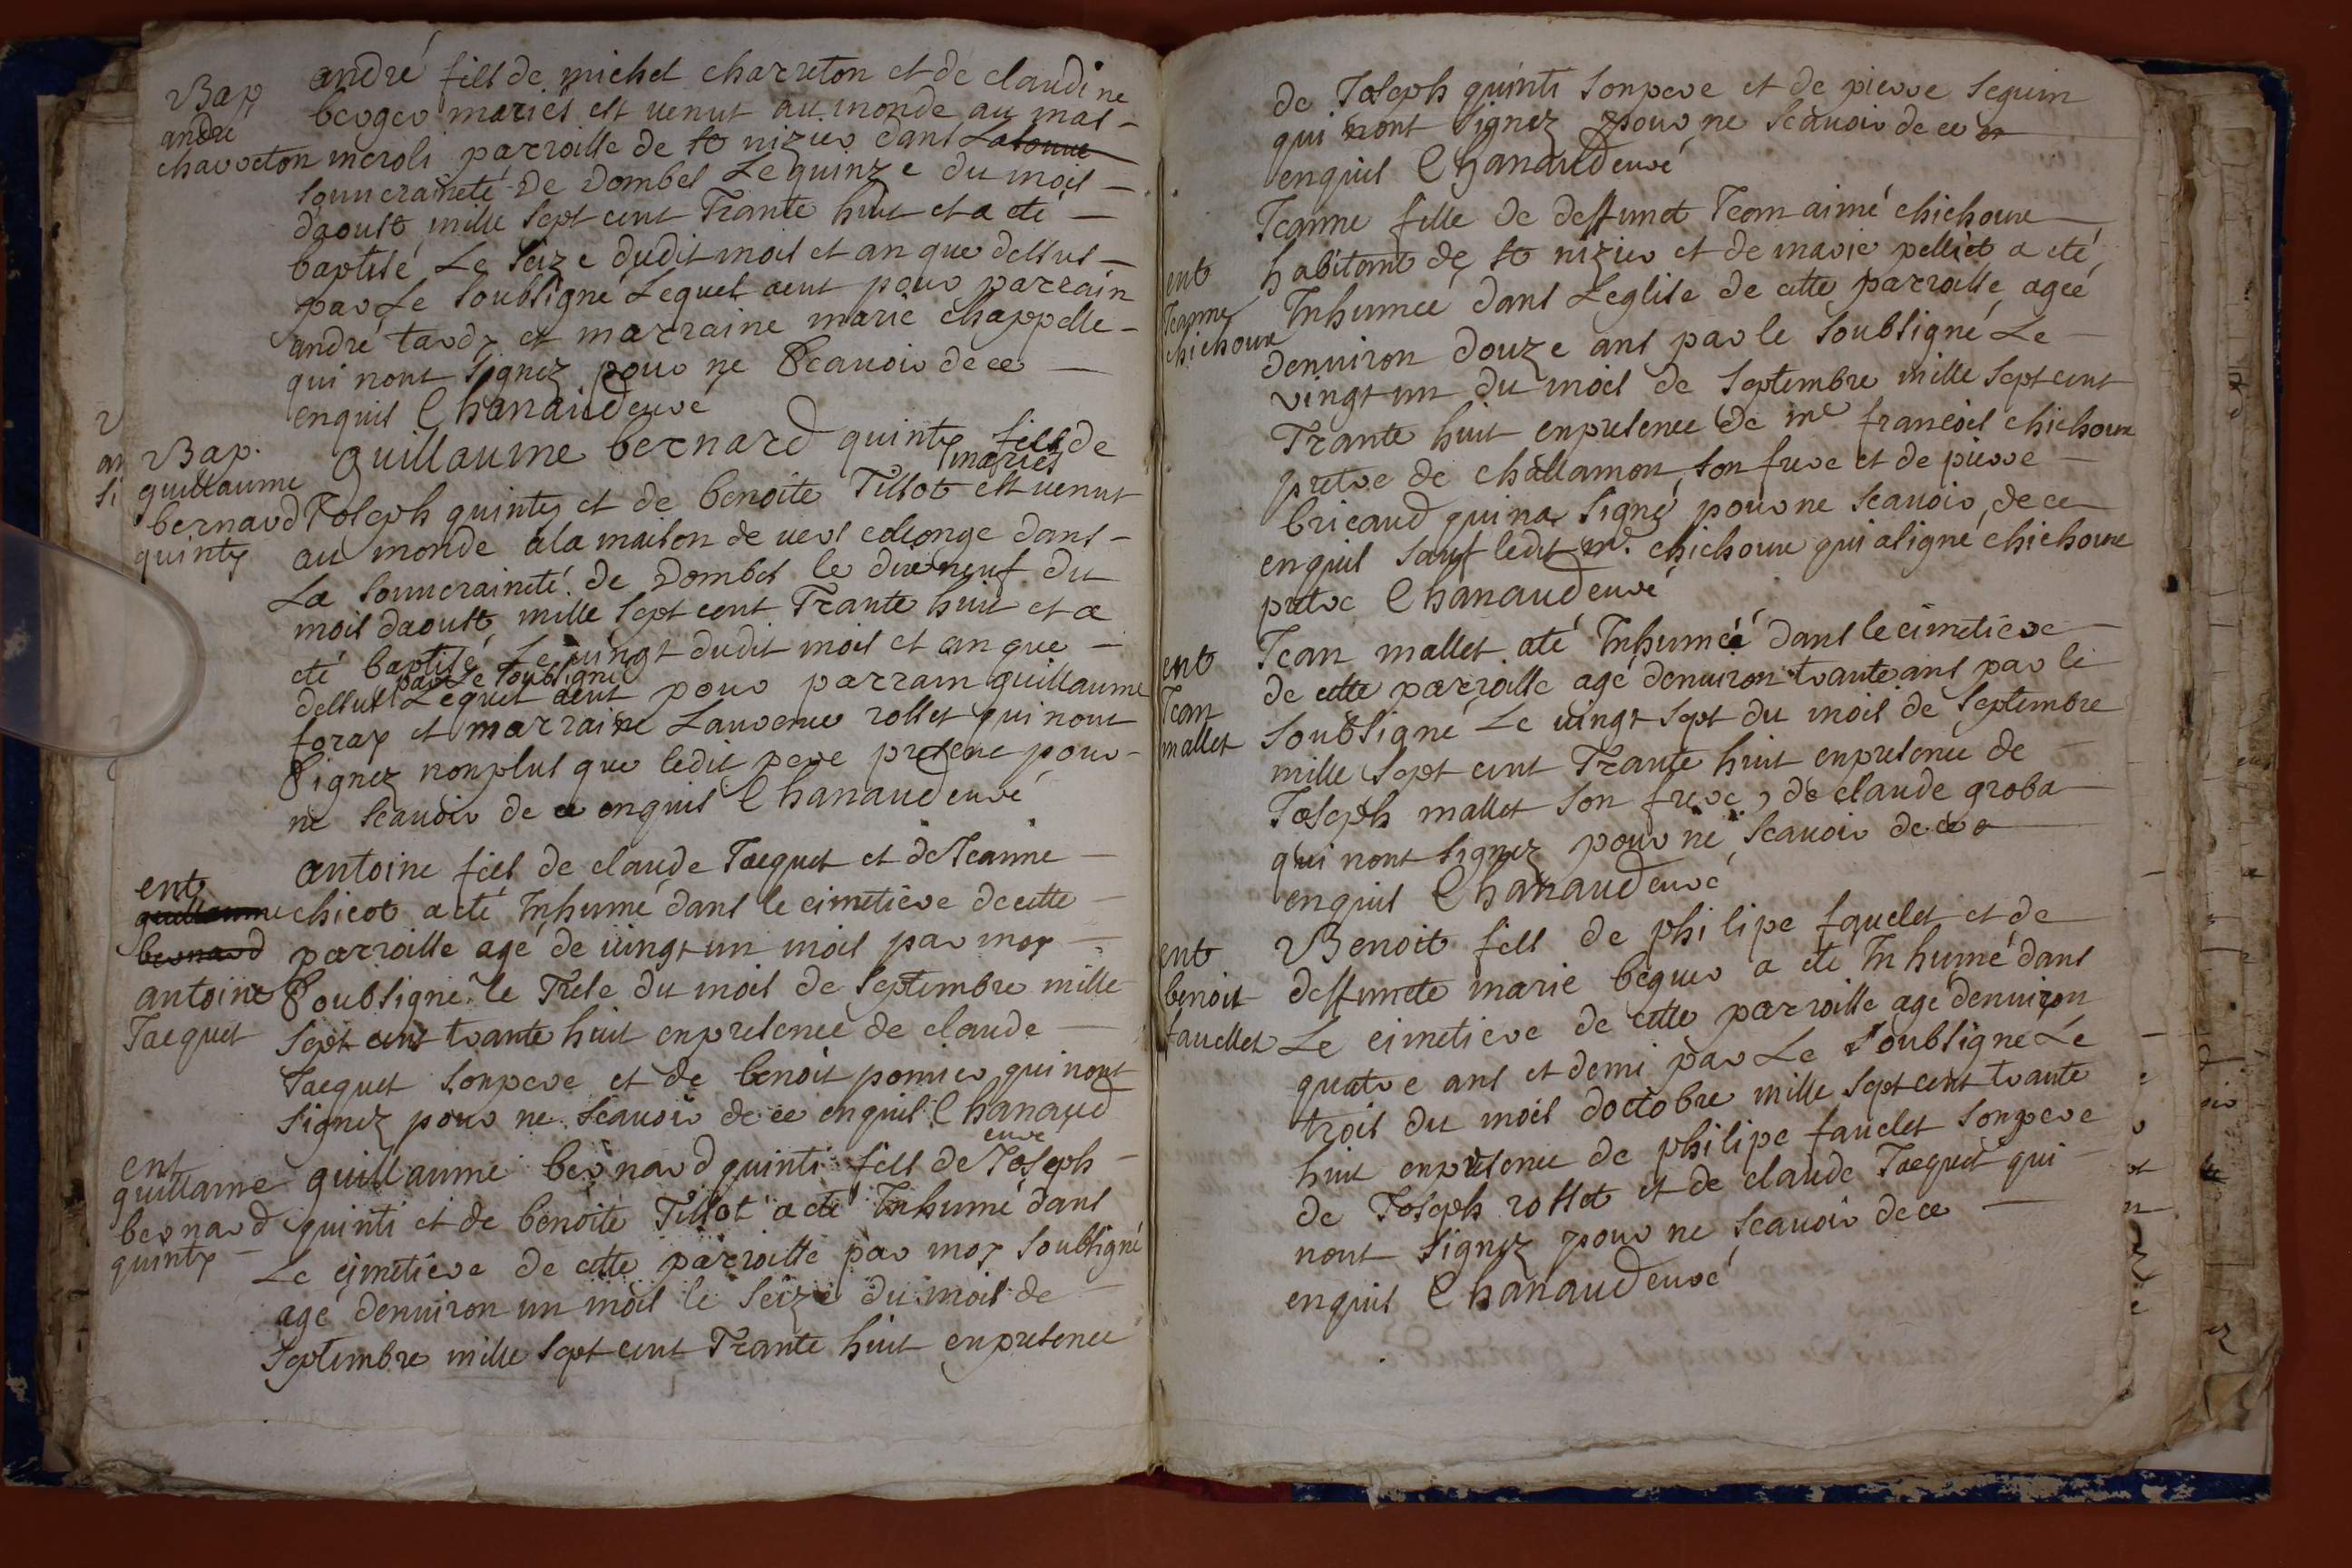 Bap
andre
charreton
andré fils de michel charreton et de claudine
berger mariés est venut au monde au mas -
meroli parroisse de st nizier dans La sonne
souueraineté de Dombes Le quinze du mois -
daoust mille sept cent Trante huit et a eté -
baptisé Le seize dudit mois et an que dessus -
par Le soubsigné Lequel aeut pour parrain
andré tardy et marraine marie chappelle -
qui nont signez pour ne scauoir de ce -
enquis Chanaud curé
Bap.
guillaume
bernard
quinty
guillaume bernard quinty fils de
Joseph quinty et de benoite Tissot mariés est venut
au monde ala maison de uers colonge dans -
La souueraineté de Dombes le dixneuf du
mois daoust mille sept cent Trante huit et a
eté baptisé Le uingt dudit mois et an que -
dessus par Le soubsigné Lequel aeut pour parrain guillaume
foray et marraine Laurence rollet qui nont
signez nonplus que ledit pere present pour -
ne scauoir de ce enquis Chanaud curé
ent
guillaume
bernard
antoine
Jacquet
antoine fils de claude Jacquet et de Jeanne -
chicot a eté Inhumé dans le cimetiere de cette -
parroisse agé de uingt un mois par moy -
soubsigné le Trese du mois de septembre mille
sept cent trante huit enpresence de claude -
Jacquet sonpere et de benoit pomier qui nont
signez pour ne scauoir de ce enquis Chanaud
curé
ent
guillaume
bernard
quinty
guillaume bernard quinti fils de Joseph -
quinti et de benoite Tissot a eté Inhumé dans
Le cimetiere de cette parroisse par moy soubsigné
agé denuiron un mois le seize du mois de -
septembre mille sept cent Trante huit enpresence
de Joseph quinti sonpere et de pierre seguin
qui nont signez pour ne scauoir de ce
enquis Chanaud curé
ent
Jeanne
chichoux
Jeanne fille de deffunct Jean aimé chichoux
habitant de st nizier et de marie pelliet a eté
Inhumée dans Leglise de cette parroisse agée
denuiron douze ans par le soubsigné Le -
vingt un du mois de septembre mille sept cent
Trante huit enpresence de mre francois chichoux
pretre de challamon, son frere et de pierre -
bricaud qui na signé pour ne scauoir de ce
enquis sauf ledit mr. chichoux qui asigné chichoux
pretre Chanaud curé
ent
Jean
mallet
Jean mallet a eté Inhumé dans le cimetiere -
de cette parroisse agé denuiron trante ans par le
soubsigné Le uingt sept du mois de septembre
mille sept cent Trante huit enpresence de
Joseph mallet son frere, de claude groba
qui nont signez pour ne scauoir de ce
enquis Chanaud curé
ent
benoit
fauellet
Benoit fils de philipe fauelet et de
deffuncte marie beguer a eté Inhumé dans
Le cimetiere de cette parroisse agé denuiron
quatre ans et demi par Le soubsigné Le
trois du mois doctobre mille sept cent trante
huit enpresence de philipe fauelet sonpere
de Joseph rosset et de claude Jacquet qui -
nont signez pour ne scauoir de ce -
enquis Chanaud curé